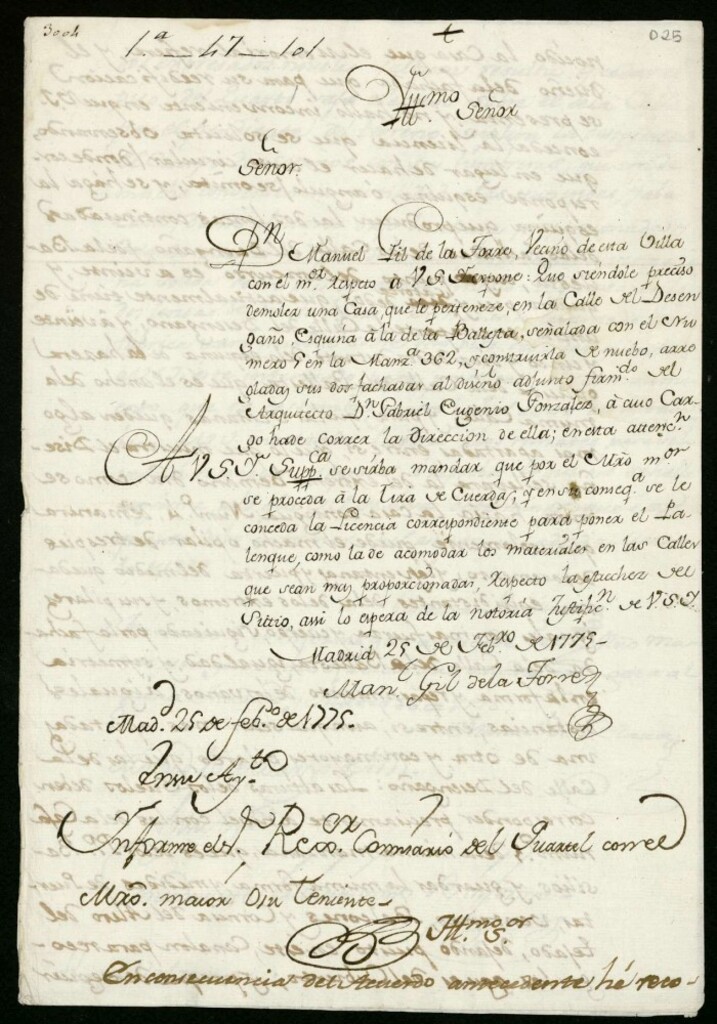 3004
025
1.ª - 47 - 101
Ill.mo Señor
Señor
D.n Manuel Gil de la Torre, Vecino de esta Villa
con el m.or respeto à V.S.I. expone: Que siendole preciso
demoler una Casa, que le perteneze, en la Calle del Desen
gaño, Esquina à la de la Ballesta, señalada con el Nu
mero 5 en la Manz.ª 362, y construirla de nuebo, arre
gladas sus dos fachadas al diseño adjunto firm.do del
Arquitecto D.n Gabriel Eugenio Gonzalez, à cuio Car
go hade correr la Direccion de ella; en esta attenc.n
A V.S.I. Supp.ca se sirba mandar que por el Mro m.or
se proceda à la Tira de Cuerdas, y en su conseq.ª se le
conceda la Licencia correspondiente para poner el Pa
lenque, como la de acomodar los materiales en las Calles
que sean mas proporcionadas, respecto la estrechez del
Sitio, assi lo espera de la notoria Justific.n de V.S.I.
Madrid 25 de Feb.ro de 1775-
Man.l Gil de la Torre
Mad.d 25 de feb.o de 1775.
En su Ay.to
Informe el S.r Rex.or Comisario del Quartel con el
Mro. maior ò su Teniente-
Ill.mo S.or
En consecuencia del Acuerdo antecedente hé reco-